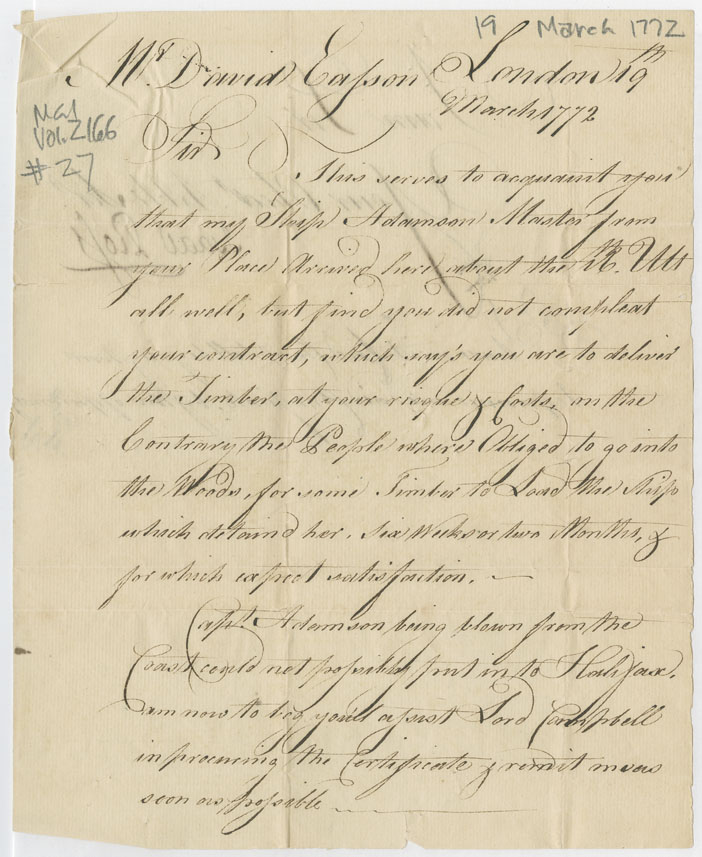 19 March 1772
Mr. David Eason London 19th
March 1772
MG1
Vol. 2166
#27
Sir
This serves to acquaint you
that my Ship Adamson Master from
your Place Arrived here about the Ult
all well, but find you did not compleat
your contract, which say's you are to deliver
the Timber, at your risque & Costs, on the
Contrary the People where Obliged to go into
the Woods, for some Timber to Load the Ship
which detaind her, Six Weeks or two Months, &
for which expect satisfaction.
Capt. Adamson being blown from the
Coast could not possibly put in to Halifax.
am now to beg you'l assist Lord Campbell
in procuring the Certificate & remit me as
soon as possible